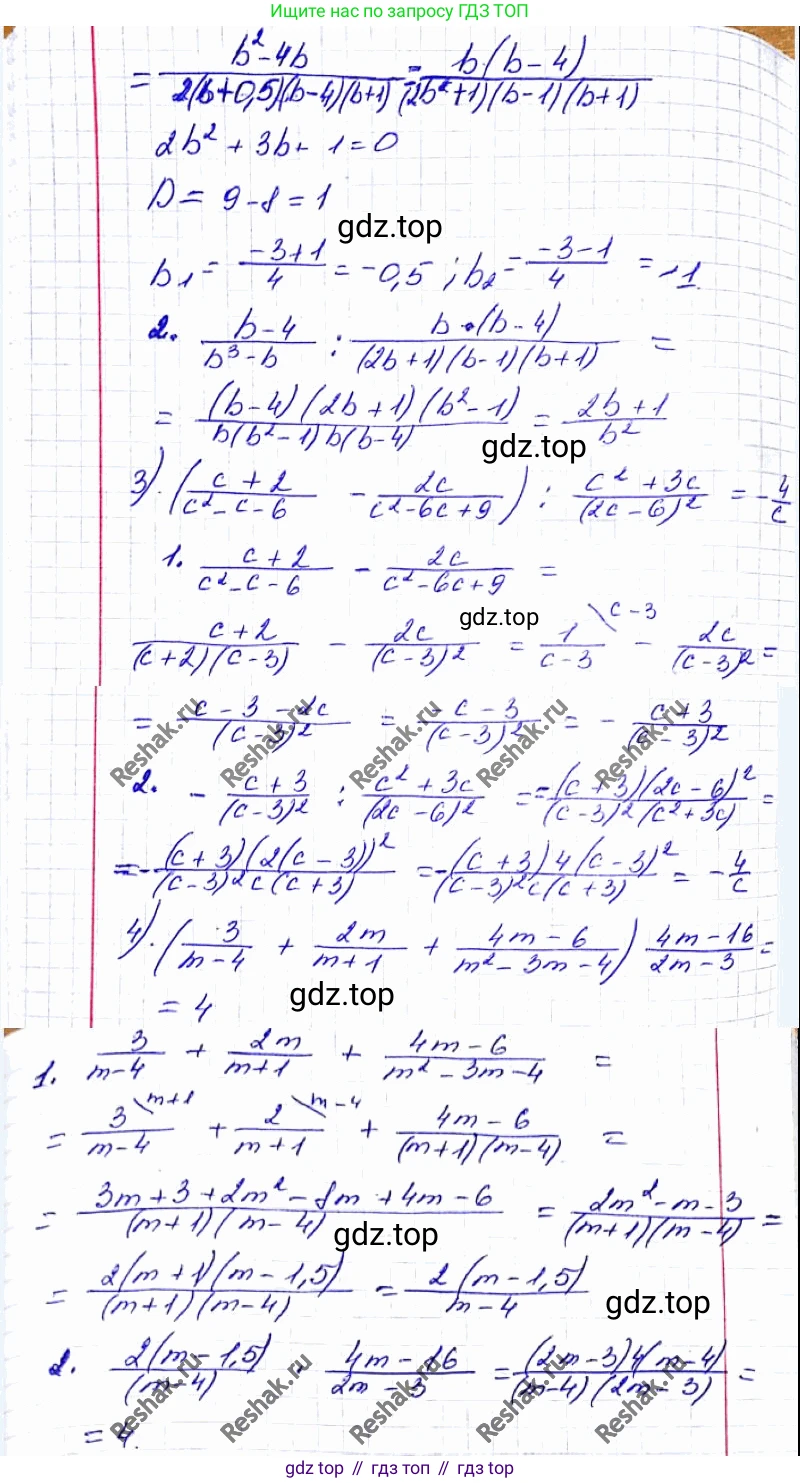 Ищите нас по запросу ГДЗ ТОП
= (b² - 4b)/(2(b+0,5)(b-4)(b+1)) = b·(b-4)/((2b²+1)(b-1)(b+1))
2b² + 3b + 1 = 0
D = 9 - 8 = 1
gdz.top
b₁ = (-3+1)/4 = -0,5 ; b₂ = (-3-1)/4 = -1
2. (b-4)/(b³-b) : b·(b-4)/((2b+1)(b-1)(b+1)) =
= (b-4)(2b+1)(b²-1)/(b(b²-1)b(b-4)) = (2b+1)/b²
gdz.top
3). ((c+2)/(c²-c-6) - 2c/(c²-6c+9)) : (c²+3c)/(2c-6)² = -4/c
1. (c+2)/(c²-c-6) - 2c/(c²-6c+9) =
gdz.top
(c+2)/((c+2)(c-3)) - 2c/(c-3)² = 1\c-3/(c-3) - 2c/(c-3)² =
= (c-3-2c)/(c-3)² = (-c-3)/(c-3)² = -(c+3)/(c-3)²
Reshak.ru Reshak.ru Reshak.ru
2. -(c+3)/(c-3)² : (c²+3c)/(2c-6)² = -(c+3)(2c-6)²/((c-3)²(c²+3c)) =
= -(c+3)(2(c-3))²/((c-3)²c(c+3)) = -(c+3)4(c-3)²/((c-3)²c(c+3)) = -4/c
4). (3/(m-4) + 2m/(m+1) + (4m-6)/(m²-3m-4)) (4m-16)/(2m-3) =
= 4
gdz.top
1. 3/(m-4) + 2m/(m+1) + (4m-6)/(m²-3m-4) =
= 3\m+1/(m-4) + 2\m-4/(m+1) + (4m-6)/((m+1)(m-4)) =
= (3m+3+2m²-8m+4m-6)/((m+1)(m-4)) = (2m²-m-3)/((m+1)(m-4)) =
gdz.top
= 2(m+1)(m-1,5)/((m+1)(m-4)) = 2(m-1,5)/(m-4)
gdz.top
2. 2(m-1,5)/(m-4) · (4m-16)/(2m-3) = (2m-3)4(m-4)/((m-4)(2m-3)) =
Reshak.ru Reshak.ru Reshak.ru Reshak.ru
= 4.
gdz.top // гдз топ // gdz.top